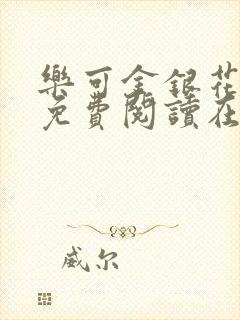 樂可金銀花
免費閱讀在
威尔